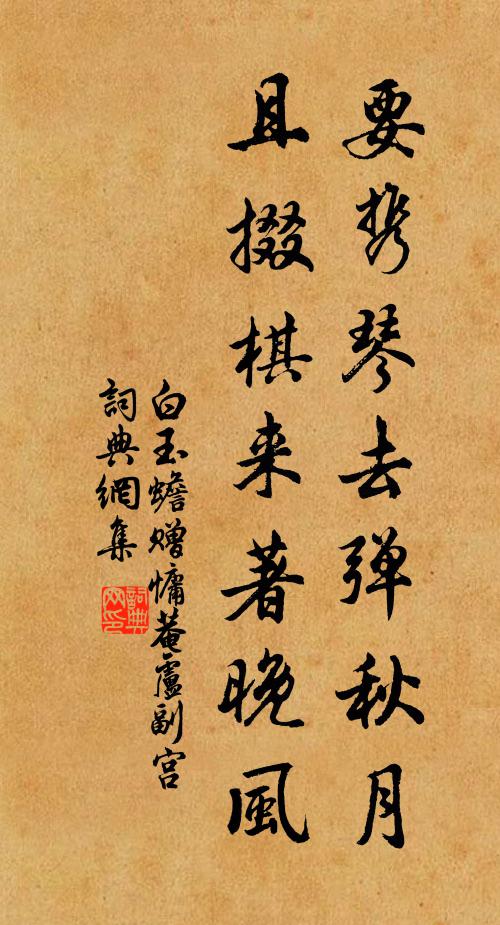 要携琴去弹秋月
且掇棋来著晚風
白玉蟾赠慵菴盧副宫
詞典網集
詞典网印